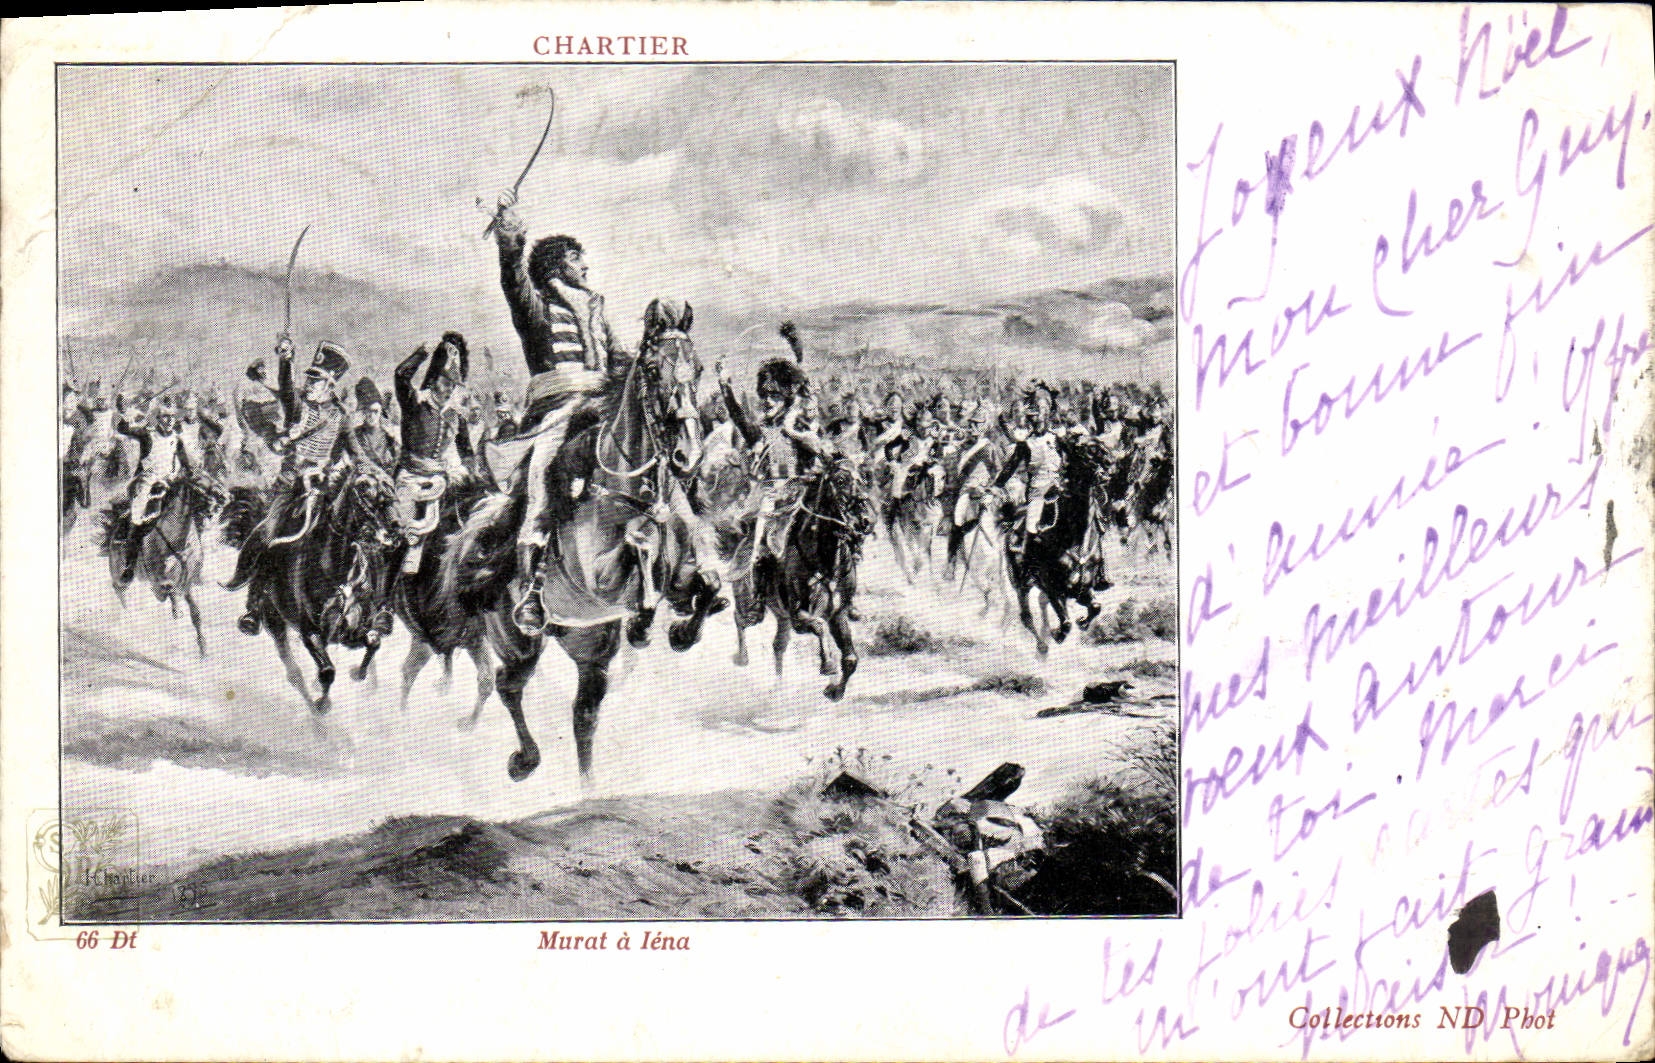 CHARTIER
Joyeux Nöel,
Mon cher Guy,
et bonne fin
d'année. Offre
mes meilleurs
vœux autour
de toi. Merci
de tes jolies cartes qui
m'ont fait grand
plaisir !
Monique
HChartier
66 Dt
Murat à Iéna
Collections ND Phot